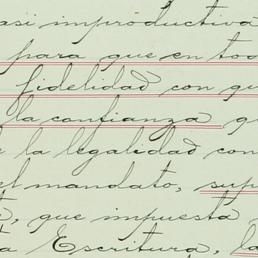 asi improductiva
para que en tod
fidelidad con qu
la confianza q
la legalidad con
el mandato, sup
, que impuesta
ta Escritura, la